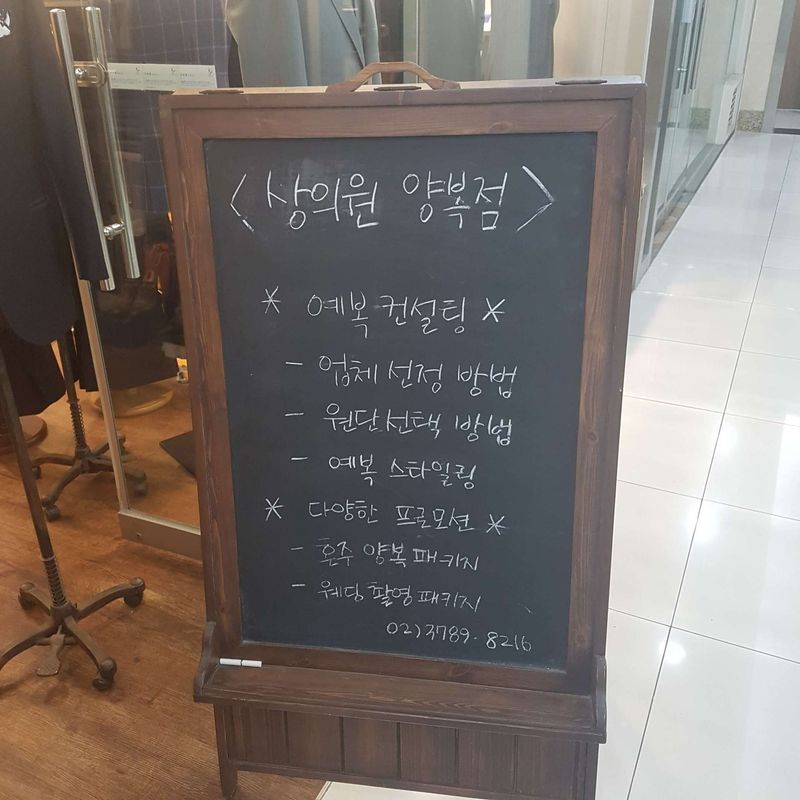 <상의원 양복점>
* 예복 컨설팅 *
- 업체 선정 방법
- 원단선택 방법
- 예복 스타일링
* 다양한 프로모션 *
- 혼주 양복 패키지
- 웨딩 촬영 패키지
02) 3789-8216